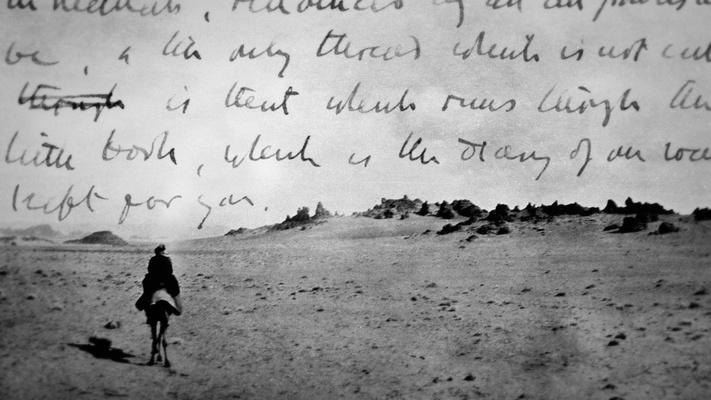 be, & the only thread which is not cut
though is that which runs through this
little book, which is the diary of my way
kept for you.